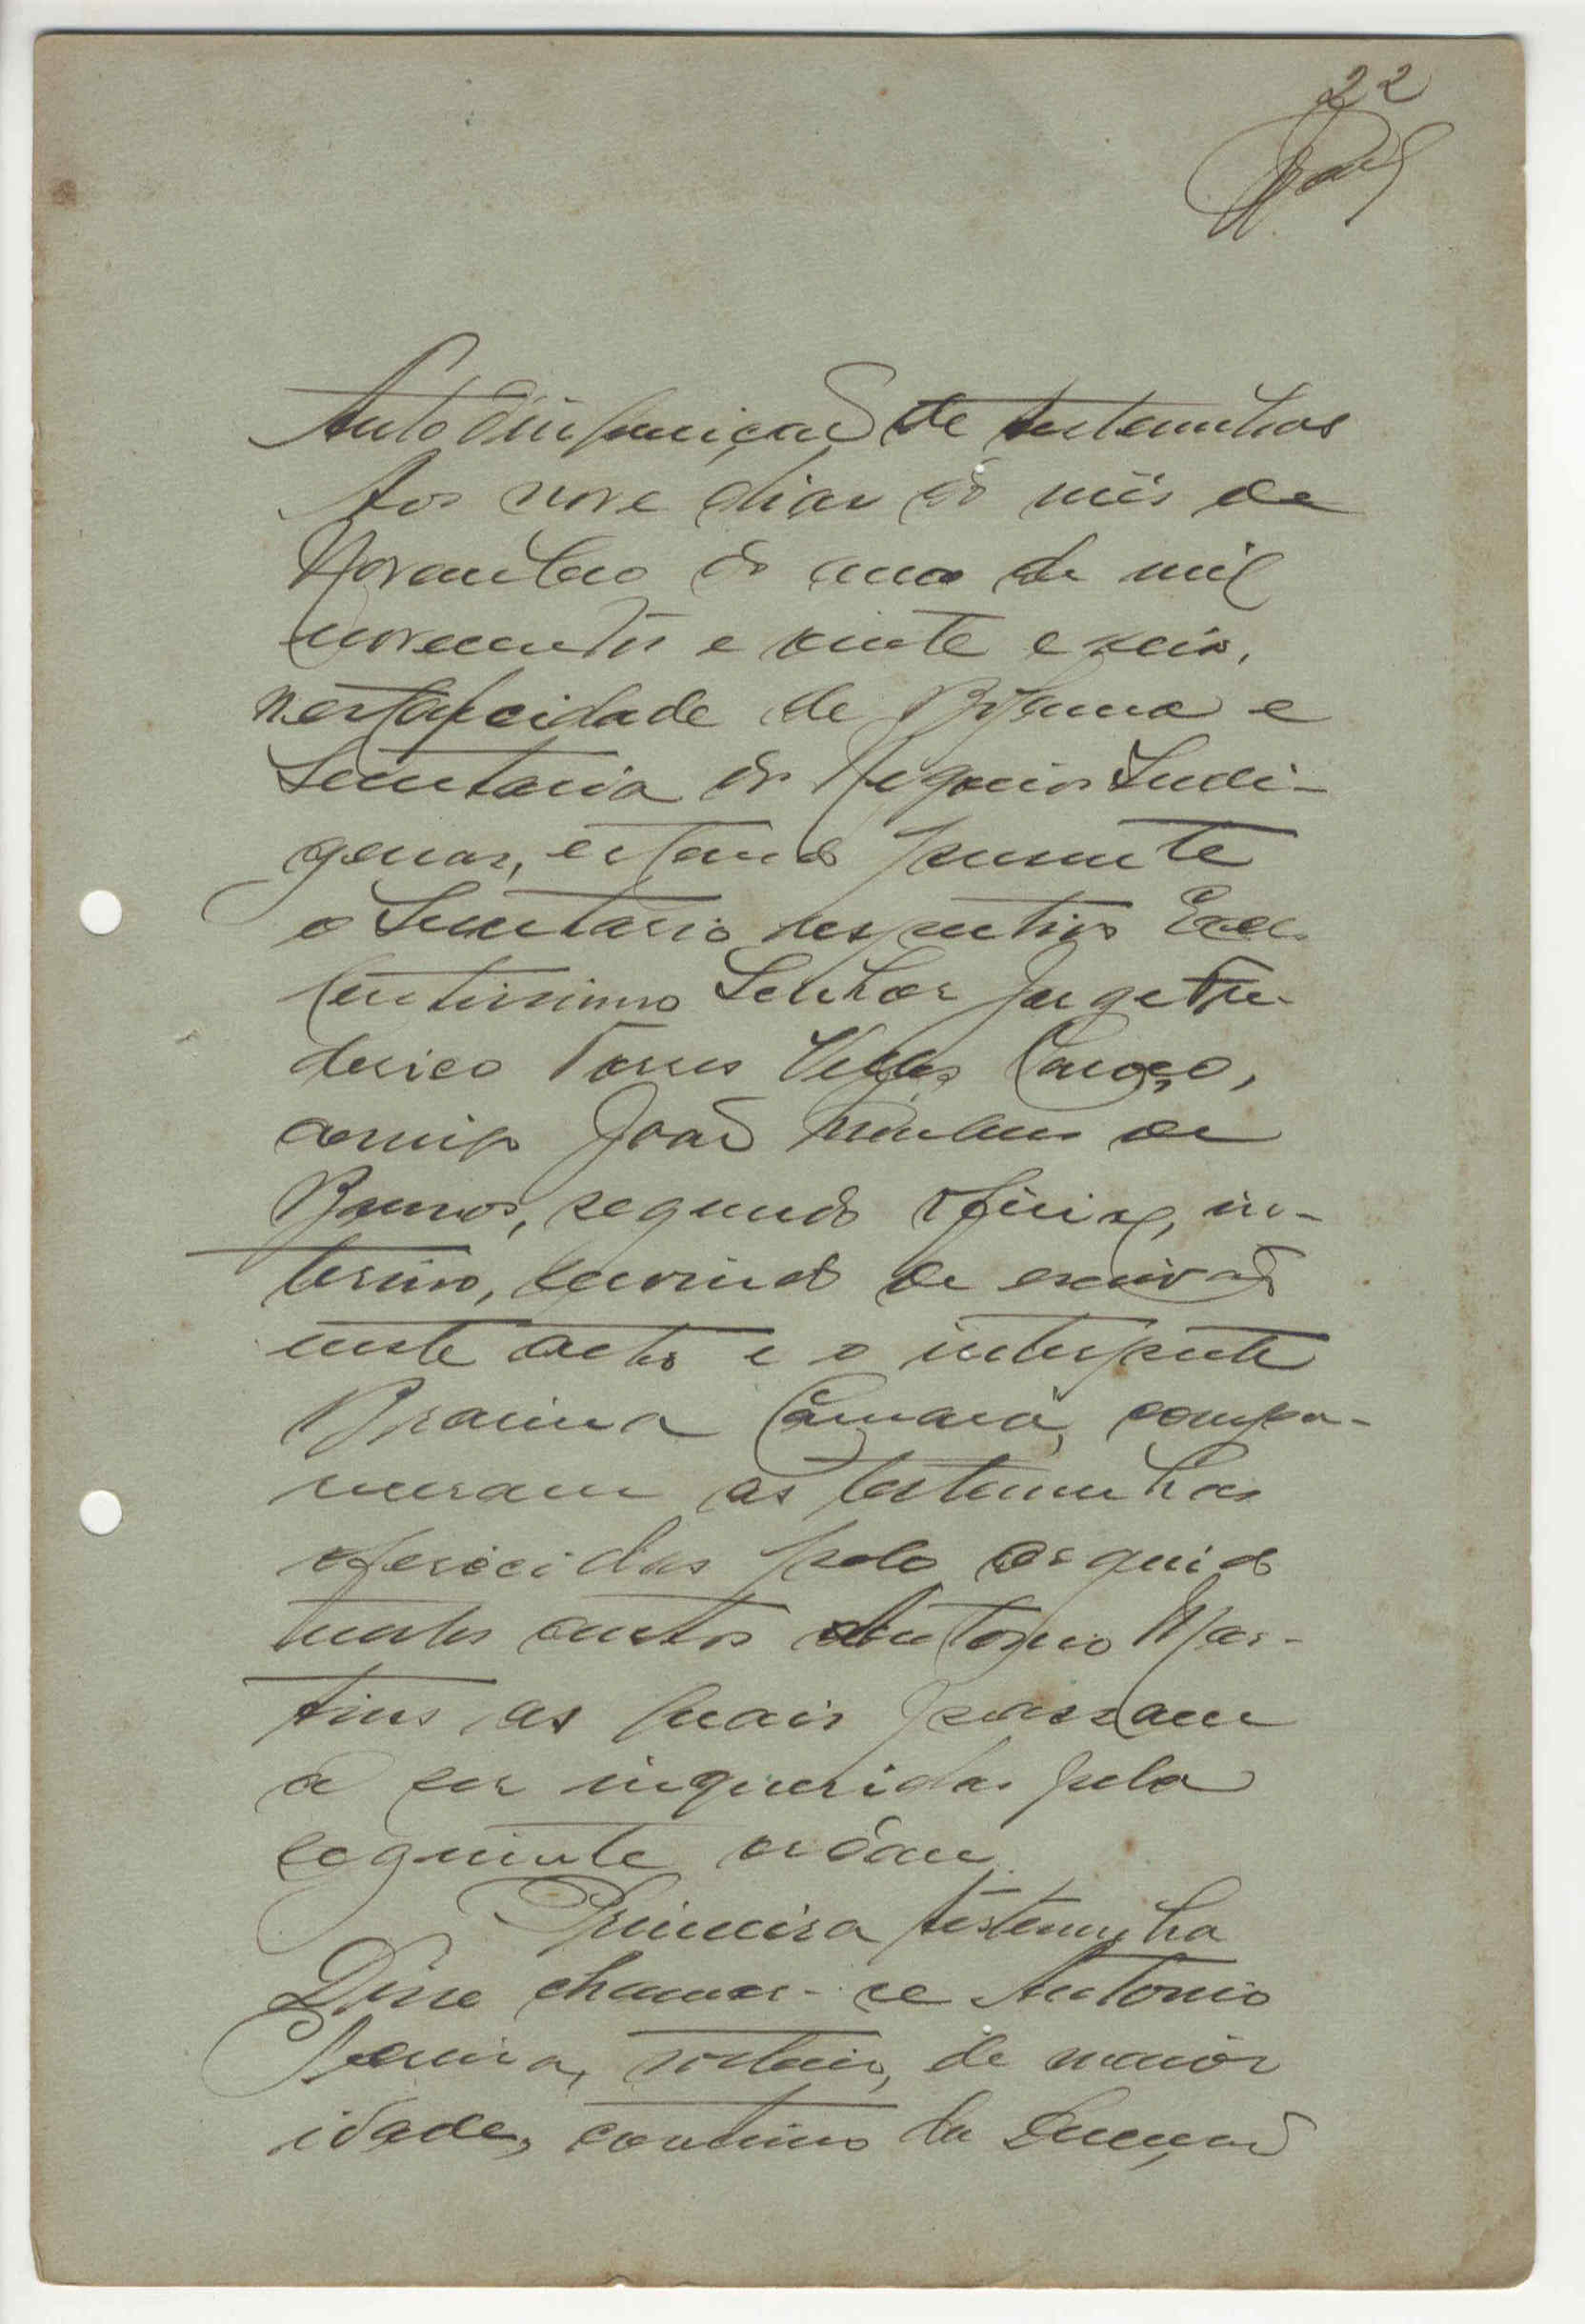 22
Auto d'inquirição de testemunhas
Aos nove dias do mês de
Novembro do ano de mil
novecentos e vinte e seis,
nesta cidade de Bolama e
Secretaria dos Negocios Indi-
genas, estando presente
o Secretario respectivo Excel-
lentissimo Senhor Jorge Fre-
derico Torres Velez Caroço,
comigo João de
Barros, segundo oficial, in-
terino, servindo de escrivão
neste acto e o interprete
Braima Câmará, compa-
receram as testemunhas
oferecidas pelo arguido
nestes autos Antonio Mar-
tins as quais passam
a ser inqueridas pela
seguinte ordem
Primeira testemunha
Disse chamar-se Antonio
Pereira, solteiro, de maior
idade, continuo da Direcção